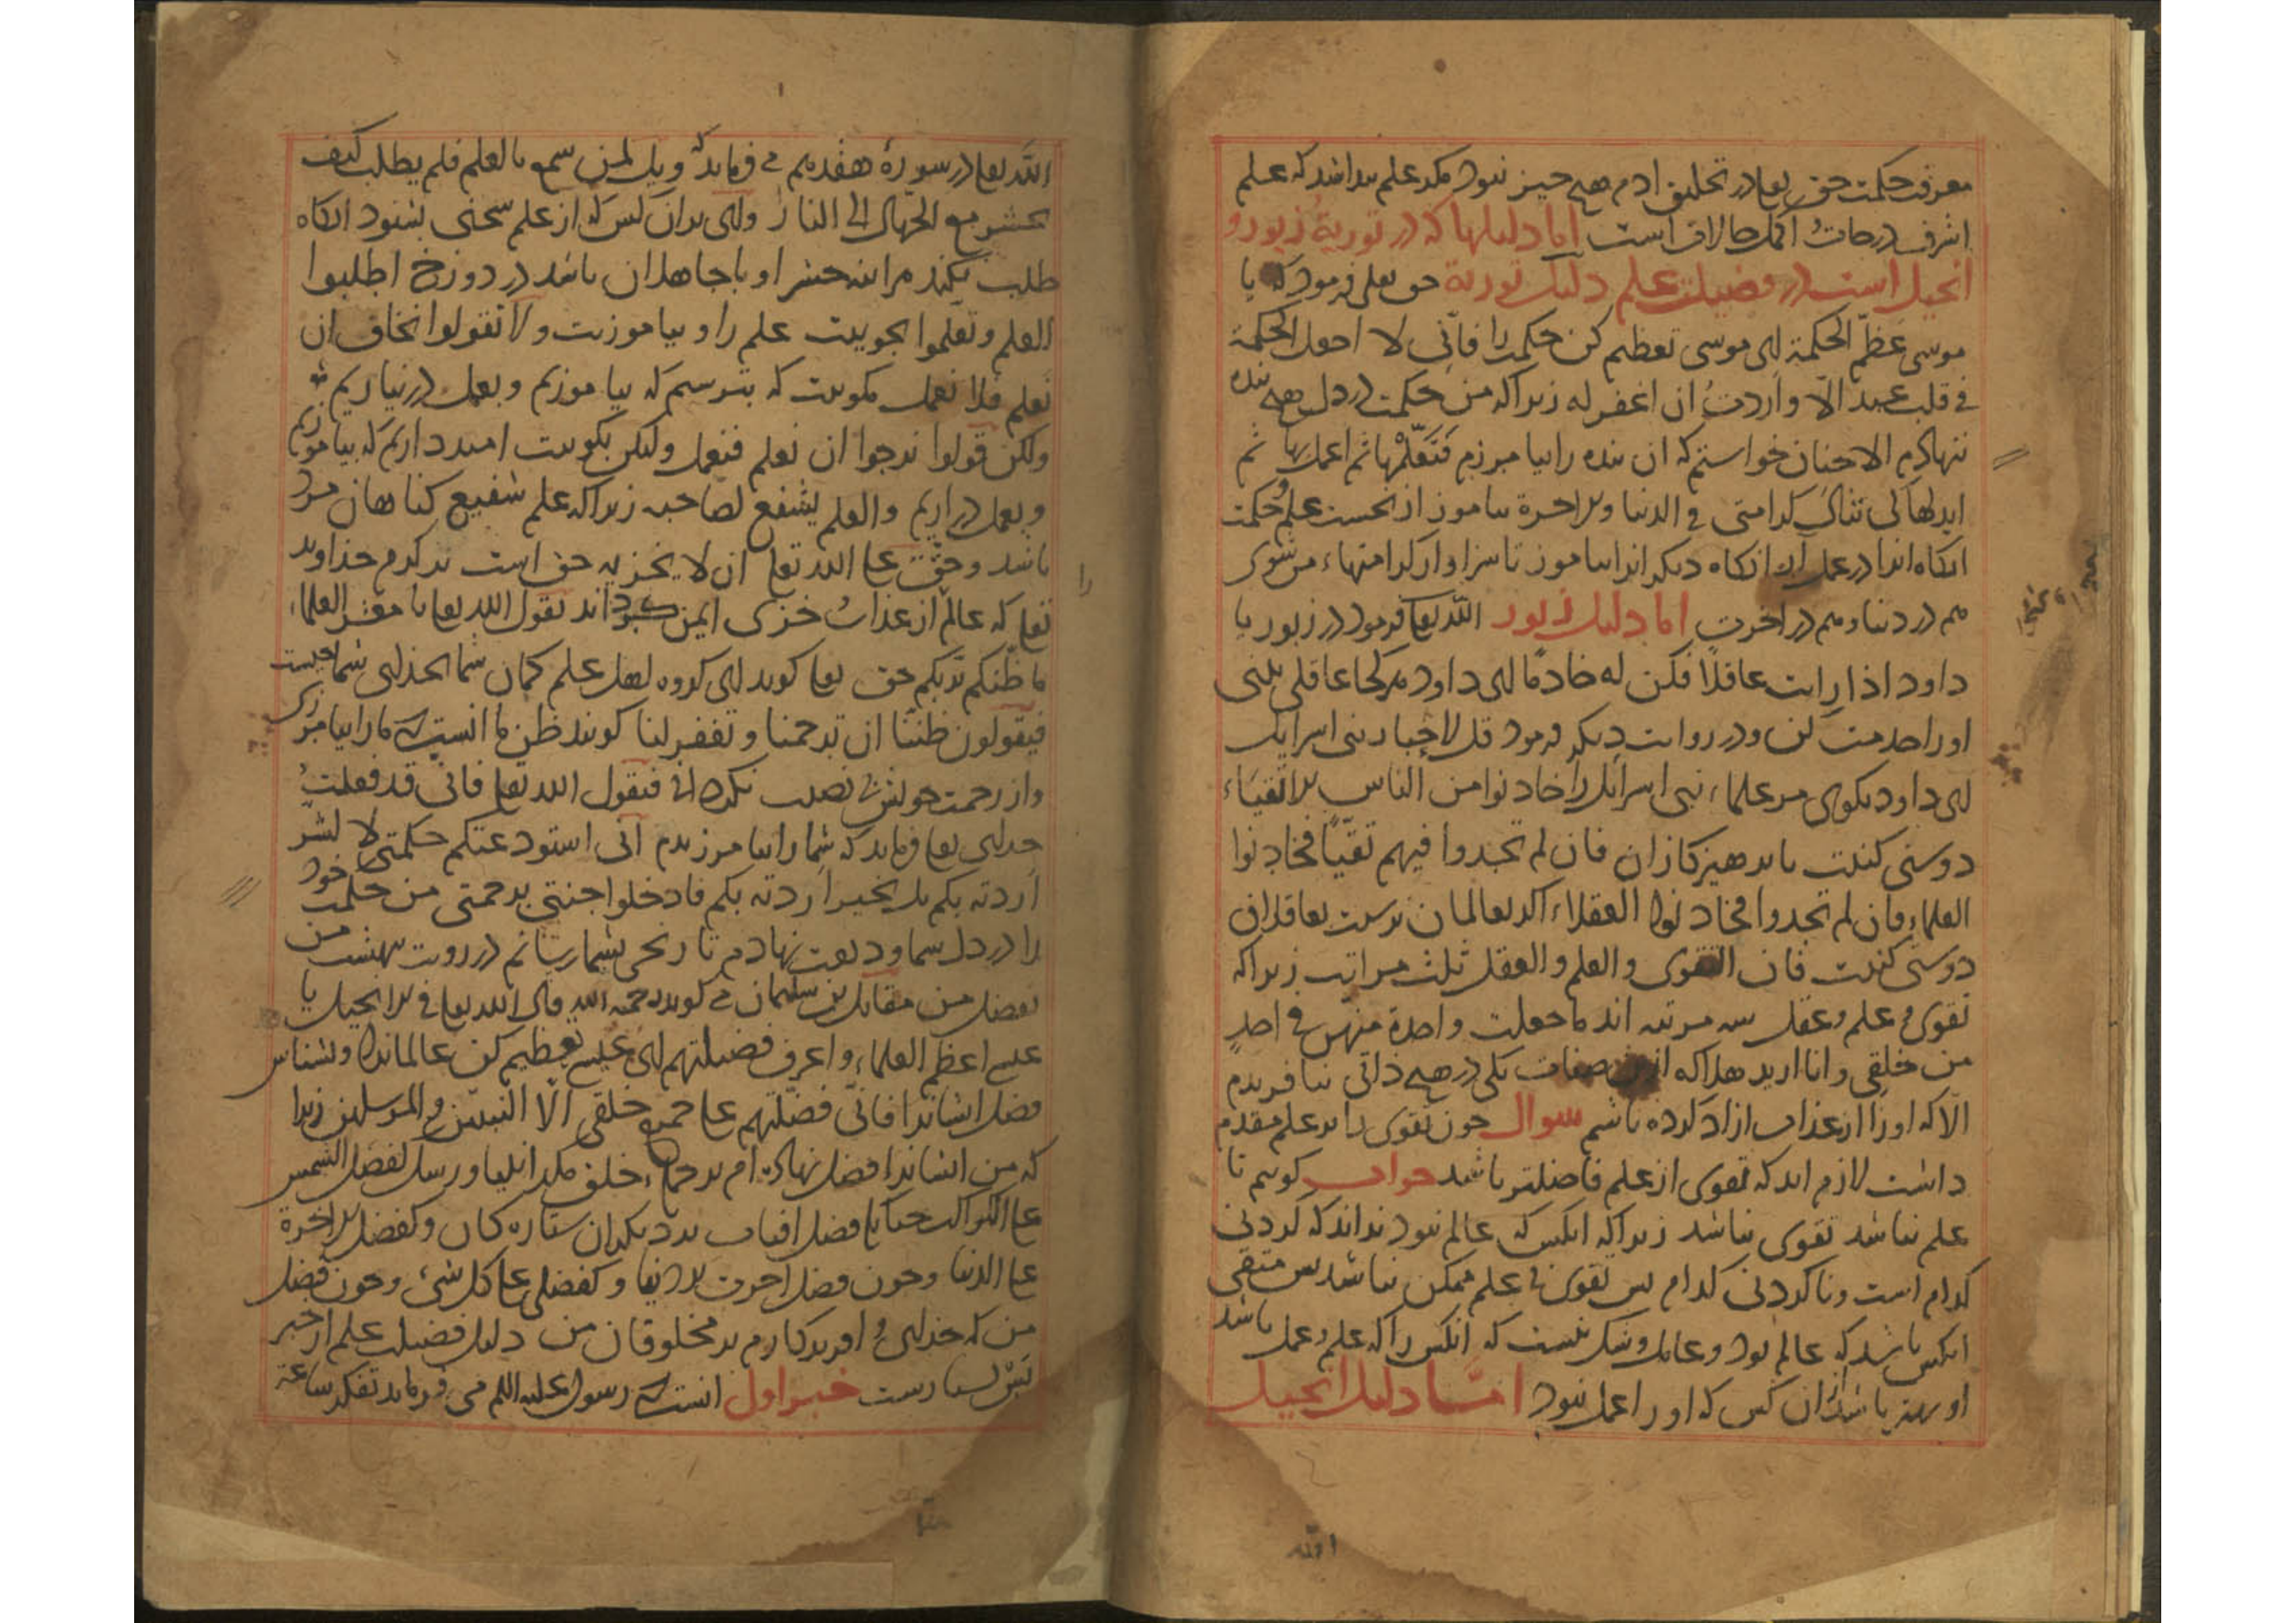 معرفت حکمت حق تعا در تخلیق ادم هیچ چیز نبود مکر علم بدانند که علم
اشرف درجات اکمل حالات است اما دلیلها که در توریة زبور و
انجیل است در فضیلت علم دلیل توریة حق تعلی فرمود که یا
موسی عظّم الحکمة ای موسی تعظیم کن حکمت را فانّی لا اجعل الحکمة
فی قلب عبد الّا واردتُ ان اغفر له زیراکه من حکمت در دل هیچ بنده
ننهادم الا چنان خواستم که ان بنده را بیامرزم فتعلّمها ثم اعمل بها ثم
ابدلها کی تنال کرامتی فی الدنیا والاخرة بیاموز از نخست علم و حکمت
انکاه انرا در عمل آر انکاه دیکر انرا بیاموز تا سزاوار کرامتهاء من شوی
هم در دنیا و هم در اخرت اما دلیل زبور اللّه تعا فرمود در زبور یا
داود اذا رایت عاقلًا فکن له خادمًا ای داود هرکجا عاقلی بینی
اورا خدمت کن و در روایت دیکر فرمود قل لاحبار بنی اسرایل
ای داود بکوی مر علماء بنی اسرایل را خادنوا من الناس الاتقیاء
دوستی کنیت با پرهیزکاران فان لم تجدوا فیهم تقیّاً فخادنوا
العلماء فان لم تجدوا فخادنوا العقلاء اکر بعالمان نرسیت بعاقلان
دوستی کنیت فان التقوی والعلم والعقل ثلث مراتب زیراکه
تقوی و علم و عقل سه مرتبه اند ما جعلت واحدة منهن فی احدٍ
من خلقی وانا ارید هلاکه ازین صفات یکی در هیچ ذاتی نیافریدم
الّا که اورا از عذاب ازاد کرده باشم سوال چون تقوی را بر علم مقدم
داشت لازم اید که تقوی از علم فاضلتر باشد جواب کویم تا
علم نباشد تقوی نباشد زیراکه انکس که عالم نبود نداند که کردنی
کدام است و ناکردنی کدام پس تقوی بی علم ممکن نباشد پس متقی
انکس باشد که عالم بود و عامل و شک نیست که انکس را که علم و عمل باشد
او بهتر باشد از ان کس که اورا عمل نبود امّا دلیل انجیل
اللّه
اللّه تعا در سورهٔ هفدهم می فرماید که ویل لمن سمع بالعلم فلم یطلب کیف
یحشر مع الجهال الی النار وای بران کس که از علم سخنی بشنود انکاه
طلب نکند هراینه حشر او با جاهلان باشد در دوزخ اطلبوا
العلم وتعلموا بجوییت علم را و بیاموزیت ولا تقولوا نخاف ان
نعلم فلا نعمل مکوییت که بترسیم که بیاموزیم و بعمل در نیاریم
ولکن قولوا نرجوا ان نعلم فنعمل ولیکن بکوییت امید داریم که بیاموزیم
و بعمل دراریم والعلم یشفع لصاحبه زیراکه علم شفیع کناهان مرد
باشد وحق علی اللّه تعا ان لا یخزیه حق است بر کرم خداوند
تعا که عالم از عذاب خزی ایمن کرداند یقول اللّه تعا یا معشر العلماء
ما ظنّکم بربّکم حق تعا کوید ای کروه اهل علم کمان شما بخدای شما چیست
فیقولون ظننّا ان ترحمنا وتغفر لنا کویند ظن ما انست که مارا بیامرزی
و از رحمت خویش بی نصیب نکردانی فیقول اللّه تعا فانی قد فعلتُ
خدای تعا فرماید که شمارا بیامرزیدم انی استودعتکم حکمتی لا لشرّ
اردته بکم بل بخیر اردته بکم فادخلوا جنتی برحمتی من حکمت خود
را در دل شما ودیعت نهادم تا رنجی بشما رسانم در رویت بهشت من
بفضل من مقاتل بن سلیمان می کوید رحمه اللّه قال اللّه تعا فی الانجیل یا
عیسی اعظم العلماء واعرف فضیلتهم ای عیسی تعظیم کن عالمانرا و بشناس
فضل ایشانرا فانّی فضّلتهم علی جمیع خلقی الّا النبیّین والمرسلین زیرا
که من ایشانرا فضل نهاده ام بر جمله خلق مکر انبیا و رسل کفضل الشمس
علی الکواکب چنانک فضل افتاب بر دیکران ستارکان وکفضل الاخرة
علی الدنیا و چون فضل آخرت بر دنیا وکفضلی علی کل شیء و چون فضل
من که خدای و افریدکارم بر مخلوقان من دلیل فضیلت علم از خبر
پس بسیارست خبر اول انست که رسول علیه السلم می فرماید تفکر ساعة